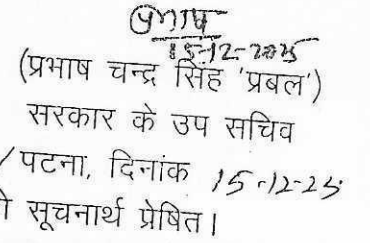 प्रभाष
15-12-2025
(प्रभाष चन्द्र सिंह 'प्रबल')
सरकार के उप सचिव
/पटना, दिनांक 15-12-25
सूचनार्थ प्रेषित।